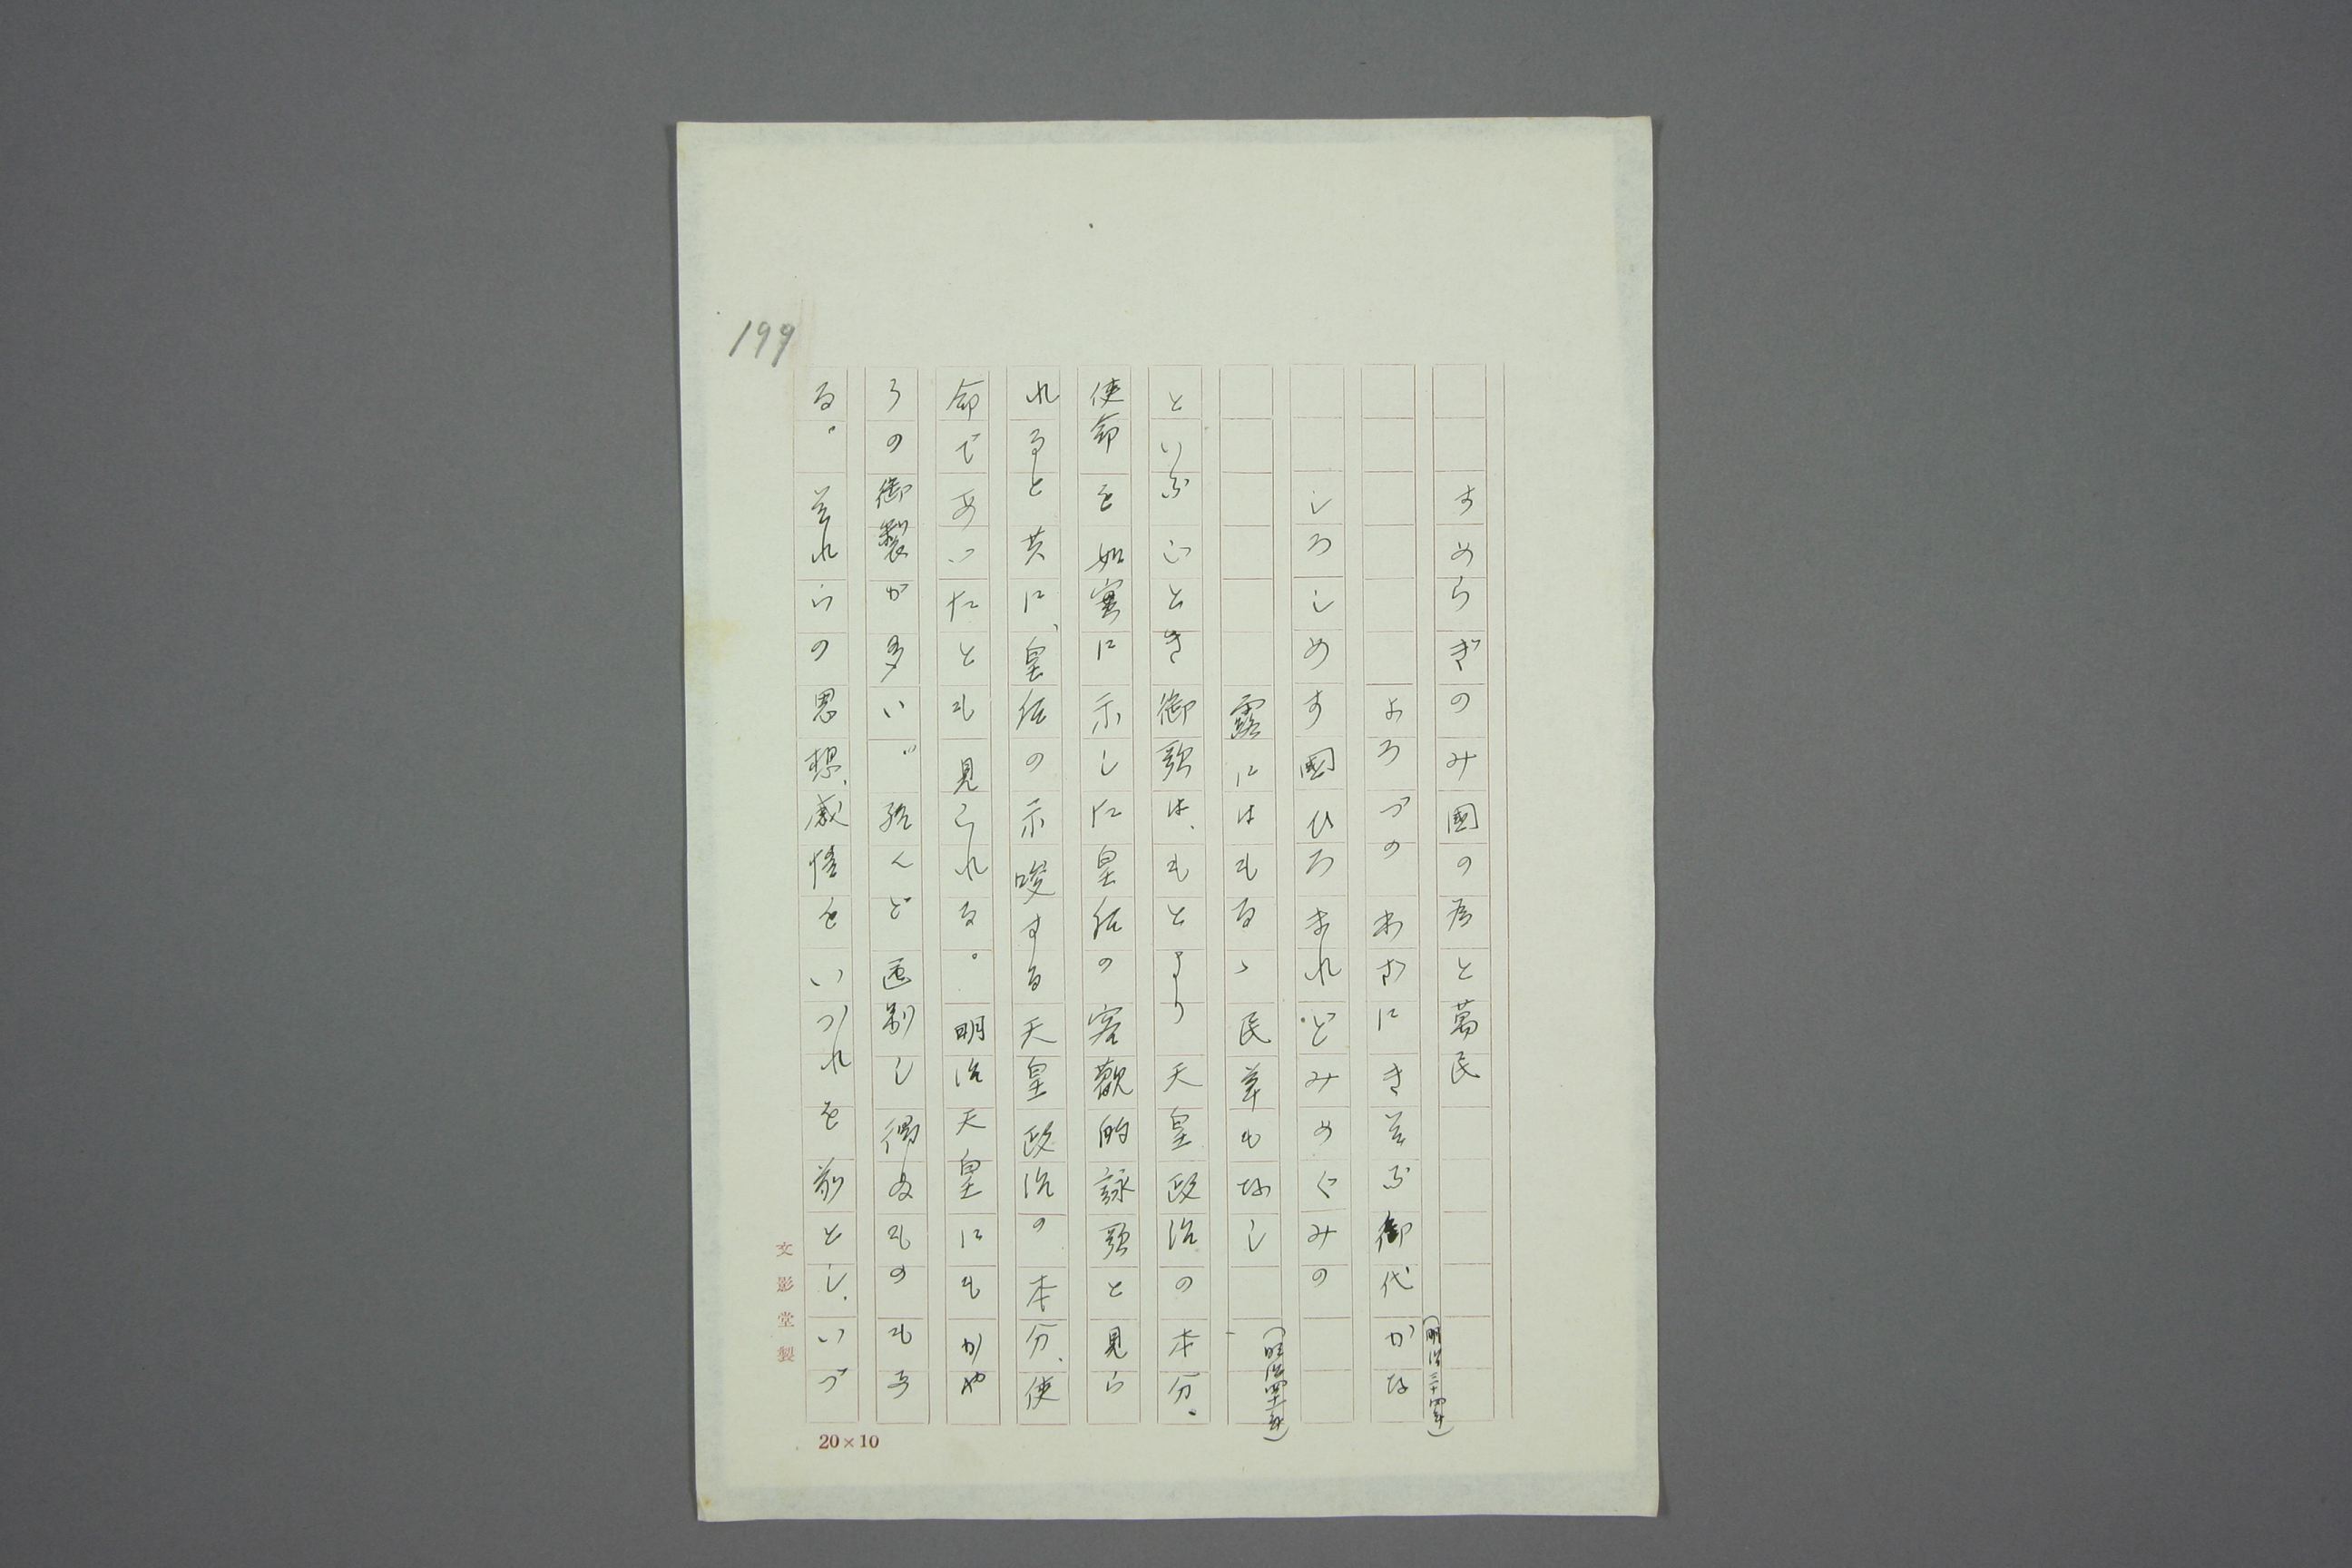 199
すめらぎのみ國の為と萬民
よろづのわざにきそふ御代かな
(明治三十四年)
しろしめす國ひろまれどみめぐみの
露にはもるゝ民草もなし
(明治四十五年)
といふごとき御歌は、もとより天皇政治の本分、
使命を如實に示した皇居の客觀的詠歌と見ら
れると共に、皇居の示唆する天皇政治の本分、使
命であいたとも見られる。明治天皇にもかや
うの御製が多い。殆んど區別し得ぬものもあ
る。それらの思想、感情をいづれを前とし、いづ
文影堂製
20×10